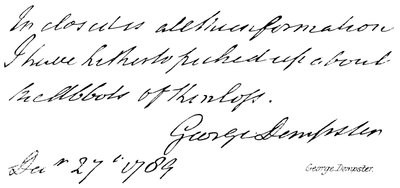 Inclosed is all the information
I have hitherto picked up about
the Abbots of Kinloss.
George Dempster
Decr 27th 1789
George Dempster.